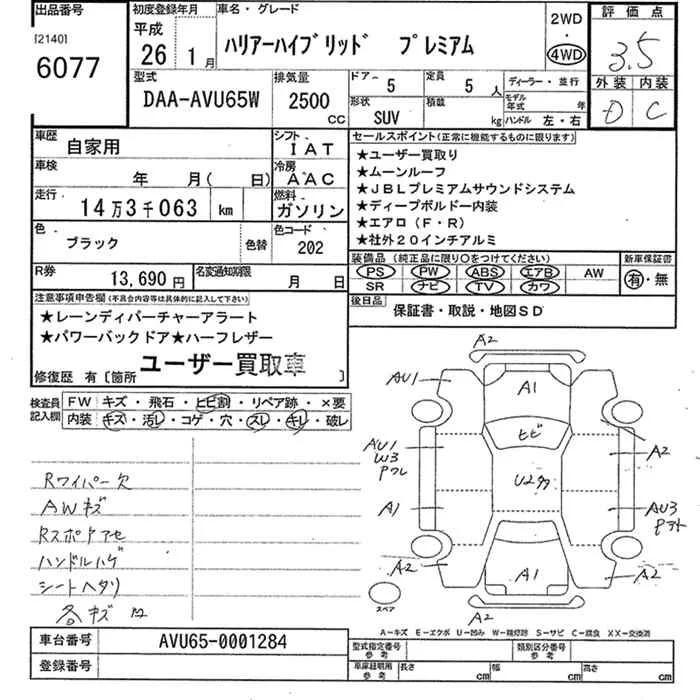 出品番号
[2140]
6077
初度登録年月
平成
26 1月
車名・グレード
ハリアーハイブリッド プレミアム
2WD
・
4WD
評価点
3.5
外装 内装
D C
型式
DAA-AVU65W
排気量
2500
cc
ドアー
5
定員
5人
形状
SUV
積載
kg
ディーラー・並行
モデル年式 年
ハンドル 左・右
車歴
自家用
シフト
IAT
車検
年 月( 日)
冷房
AAC
走行
14万3千063 km
燃料
ガソリン
色
ブラック
色替
色コード
202
R券
13,690円
名変通知期限
月 日
セールスポイント(正常に機能するものに限ります)
★ユーザー買取り
★ムーンルーフ
★JBLプレミアムサウンドシステム
★ディープボルドー内装
★エアロ(F・R)
★社外20インチアルミ
装備品 (純正品に限り○をつけてください)
PS PW ABS エアB AW
SR ナビ TV カワ
新車保証書
有・無
後日品
保証書・取説・地図SD
注意事項申告欄(不具合内容等は具体的に記入して下さい)
★レーンディパーチャーアラート
★パワーバックドア★ハーフレザー
ユーザー買取車
修復歴 有〔箇所 〕
検査員記入欄
FW キズ・飛石・ヒビ割・リペア跡・×要
内装 キズ・汚レ・コゲ・穴・スレ・キレ・破レ
Rワイパー欠
AWキズ
ハンドルハゲ
シートヘタリ
A2
AU1
A1
ヒビ
AU1
W3
A2
U2多
A1
AU3
A2
A1
A2
スペア
A2
A-キズ E-エクボ U-凹み W-補修跡 S-サビ C-腐食 XX-交換済
車台番号
AVU65-0001284
登録番号
型式指定番号
参考
類別区分番号
参考
車庫証明用
参考
長さ cm
幅 cm
高さ cm